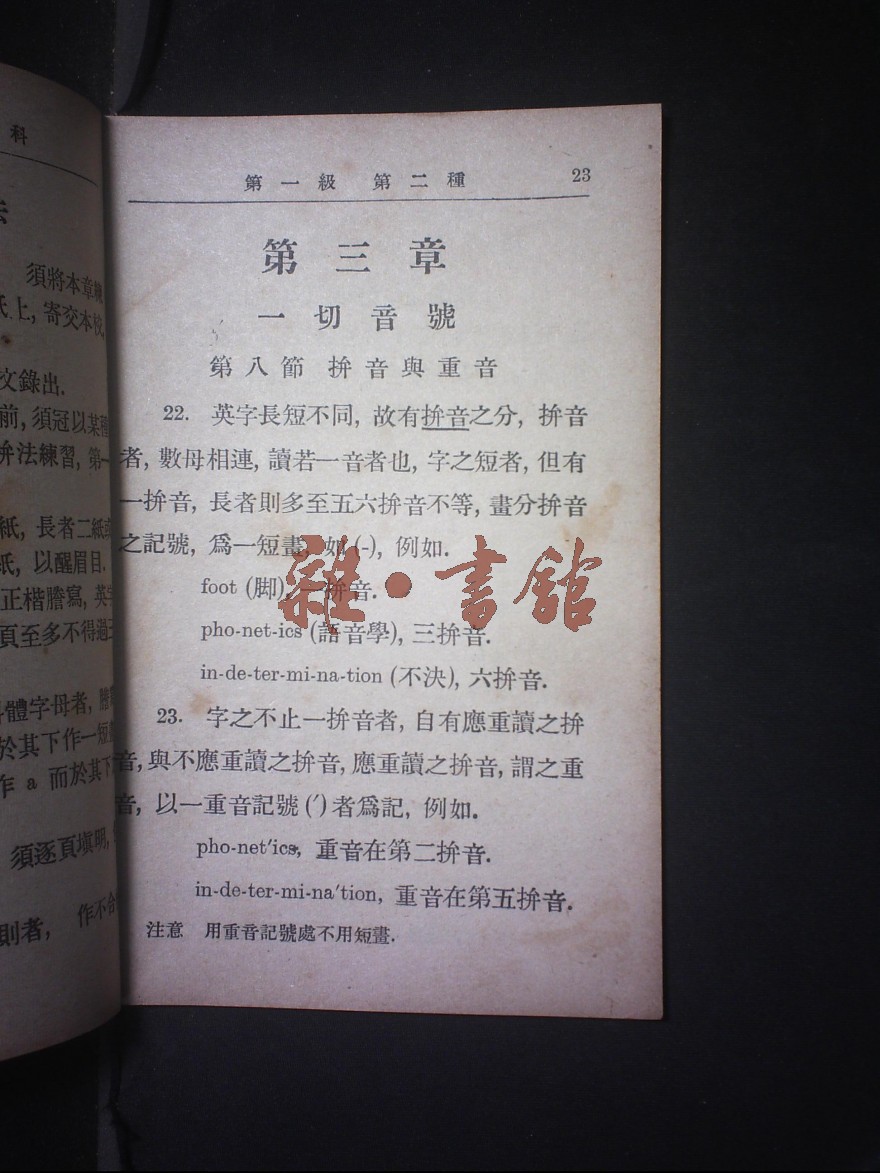 科
須將本章
紙上, 寄交本校,
文錄出.
前, 須冠以某種
法練習, 第一
紙, 長者二紙或
紙, 以醒眉目.
正楷謄寫, 英字
頁至多不得過三
體字母者,
於其下作一短
作 a 而於其下
須逐頁塡明,
則者, 作不合
第一級 第二種 23
第三章
一切音號
第八節 拚音與重音
22. 英字長短不同, 故有拚音之分, 拚音
者, 數母相連, 讀若一音者也, 字之短者, 但有
一拚音, 長者則多至五六拚音不等, 畫分拚音
之記號, 爲一短畫, 如 (-), 例如.
foot (脚), 一拚音.
pho-net-ics (語音學), 三拚音.
in-de-ter-mi-na-tion (不決), 六拚音.
23. 字之不止一拚音者, 自有應重讀之拚
音, 與不應重讀之拚音, 應重讀之拚音, 謂之重
音, 以一重音記號 (′) 者爲記, 例如.
pho-net′ics, 重音在第二拚音.
in-de-ter-mi-na′tion, 重音在第五拚音.
注意 用重音記號處不用短畫.
雜·書館